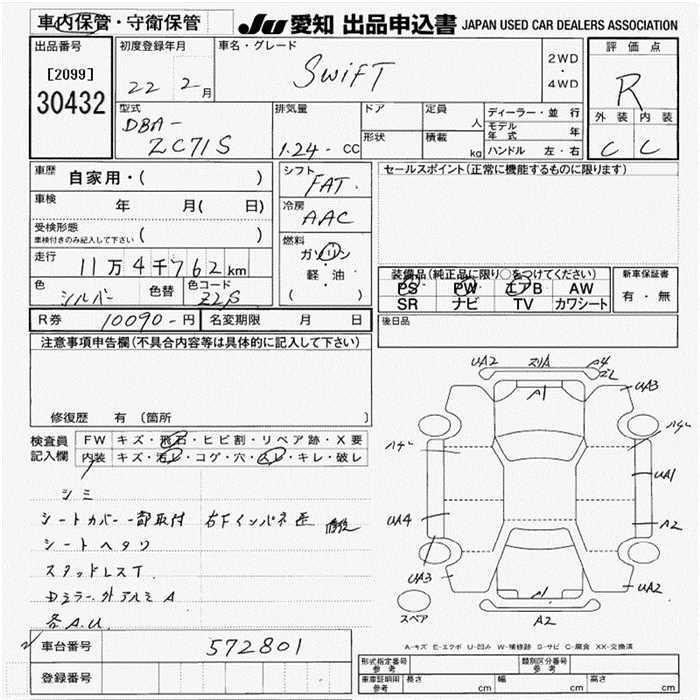 車内保管・守衛保管 JU 愛知 出品申込書 JAPAN USED CAR DEALERS ASSOCIATION
出品番号 初度登録年月 車名・グレード 2WD ・ 4WD 評価点
[2099] 22 2月 SWiFT R
30432 外装 内装
型式 排気量 ドア 定員 人 ディーラー・並行
DBA- モデル年式 年
ZC71S 1.24- CC 形状 積載 kg ハンドル 左・右 C C
車歴 自家用・( ) シフト FAT. セールスポイント(正常に機能するものに限ります)
車検 年 月( 日) 冷房 AAC
受検形態 ( )
車検付きのみ記入して下さい
燃料 ガソリン・軽油 ( )
走行 11万4千762km
装備品(純正品に限り○をつけてください) 新車保証書
色 シルバー 色替 色コード Z2S
PS PW エアB AW 有・無
SR ナビ TV カワシート
R券 10090-円 名変期限 月 日 後日品
注意事項申告欄(不具合内容等は具体的に記入して下さい)
修復歴 有 (箇所 )
検査員記入欄 FW キズ・飛石・ヒビ割・リペア跡・X要
内装 キズ・汚レ・コゲ・穴・スレ・キレ・破レ
シミ
シートカバー一部取付 右Fインパネ歪 修復
シートヘタリ
スタッドレスT.
Dミラー外アルミA
各A.U.
UA2 スリA A4
スレ
A1 UA3
ハゲ ハゲ
UA1
UA4 A2
UA3 A1 UA2
スペア A2
A-キズ E-エクボ U-凹み W-補修跡 S-サビ C-腐食 XX-交換済
車台番号 572801
登録番号
形式指定番号 参考 類別区分番号 参考
車庫証明用 参考 長さ cm 幅 cm 高さ cm